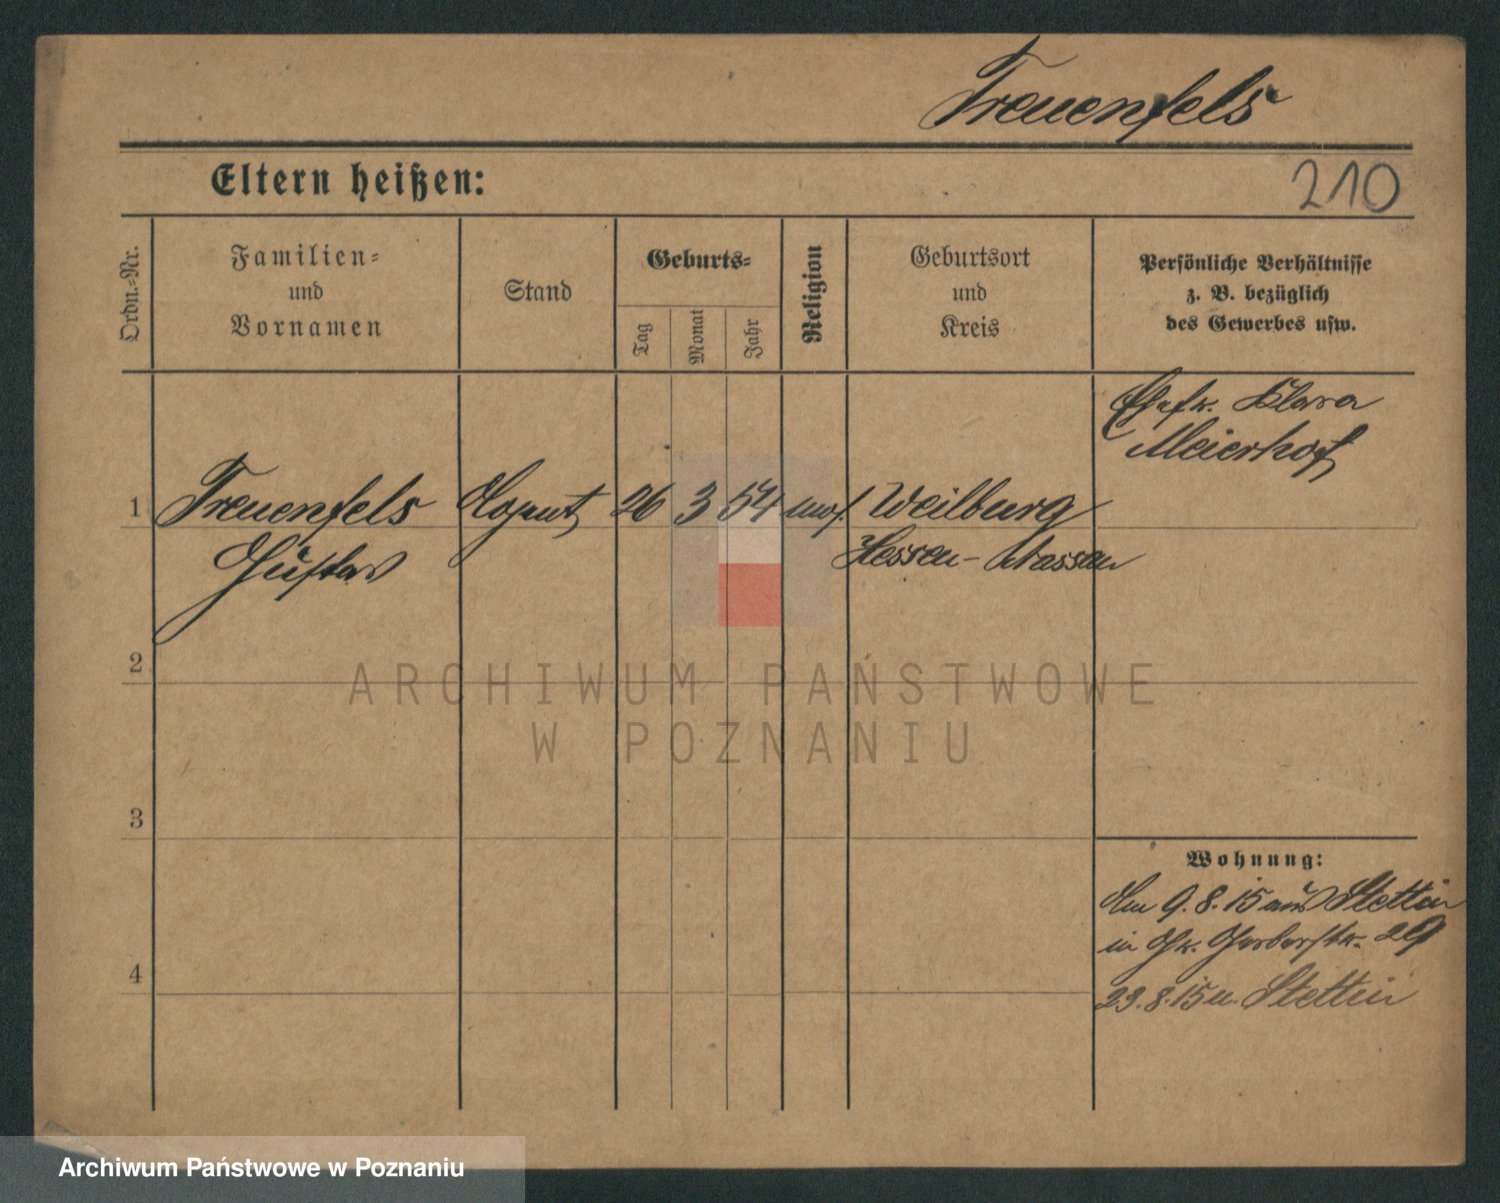 Treuenfels
Eltern heißen:
210
Ordn.-Nr.
Familien-
und
Vornamen
Stand
Geburts-
Tag
Monat
Jahr
Religion
Geburtsort
und
Kreis
Persönliche Verhältnisse
z. B. bezüglich
des Gewerbes usw.
Ehefr. Klara
Meierhof
1 Treuenfels Agent 26 3 54 mos. Weilburg
Gustav Hessen-Nassau
2
ARCHIWUM PAŃSTWOWE
W POZNANIU
3
Wohnung:
Am 9.8.15 aus Stettin
in Gr. Gerberstr. 29
4
23.8.15 n. Stettin
Archiwum Państwowe w Poznaniu